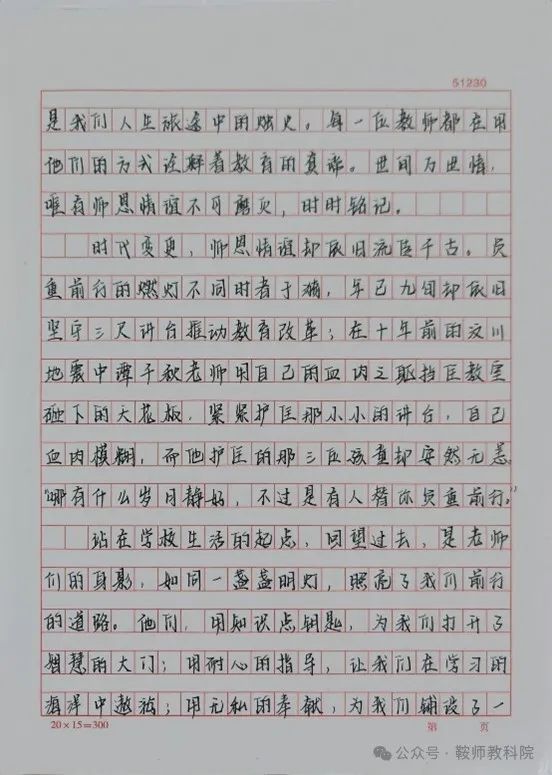 51230
是我们人生旅途中的烛火。每一位教师都在用
他们的方式诠释着教育的真谛。世间万世情，
唯有师恩情谊不可磨灭，时时铭记。
时代变更，师恩情谊却依旧流臣千古。负
重前行的燃灯不同时者于漪，年已九旬却依旧
坚守三尺讲台推动教育改革；在十年前的汶川
地震中谭千秋老师用自己的血肉之躯挡住教室
砸下的天花板，紧紧护住那小小的讲台，自己
血肉模糊，而他护住的那三位孩童却安然无恙。
“哪有什么岁月静好，不过是有人替你负重前行。”
站在学校生活的起点，回望过去，是老师
们的身影，如同一盏盏明灯，照亮了我们前行
的道路。他们，用知识点钥匙，为我们打开了
智慧的大门；用耐心的指导，让我们在学习的
海洋中遨游；用无私的奉献，为我们铺设了一
20×15=300
第 页
公众号·鞍师教科院